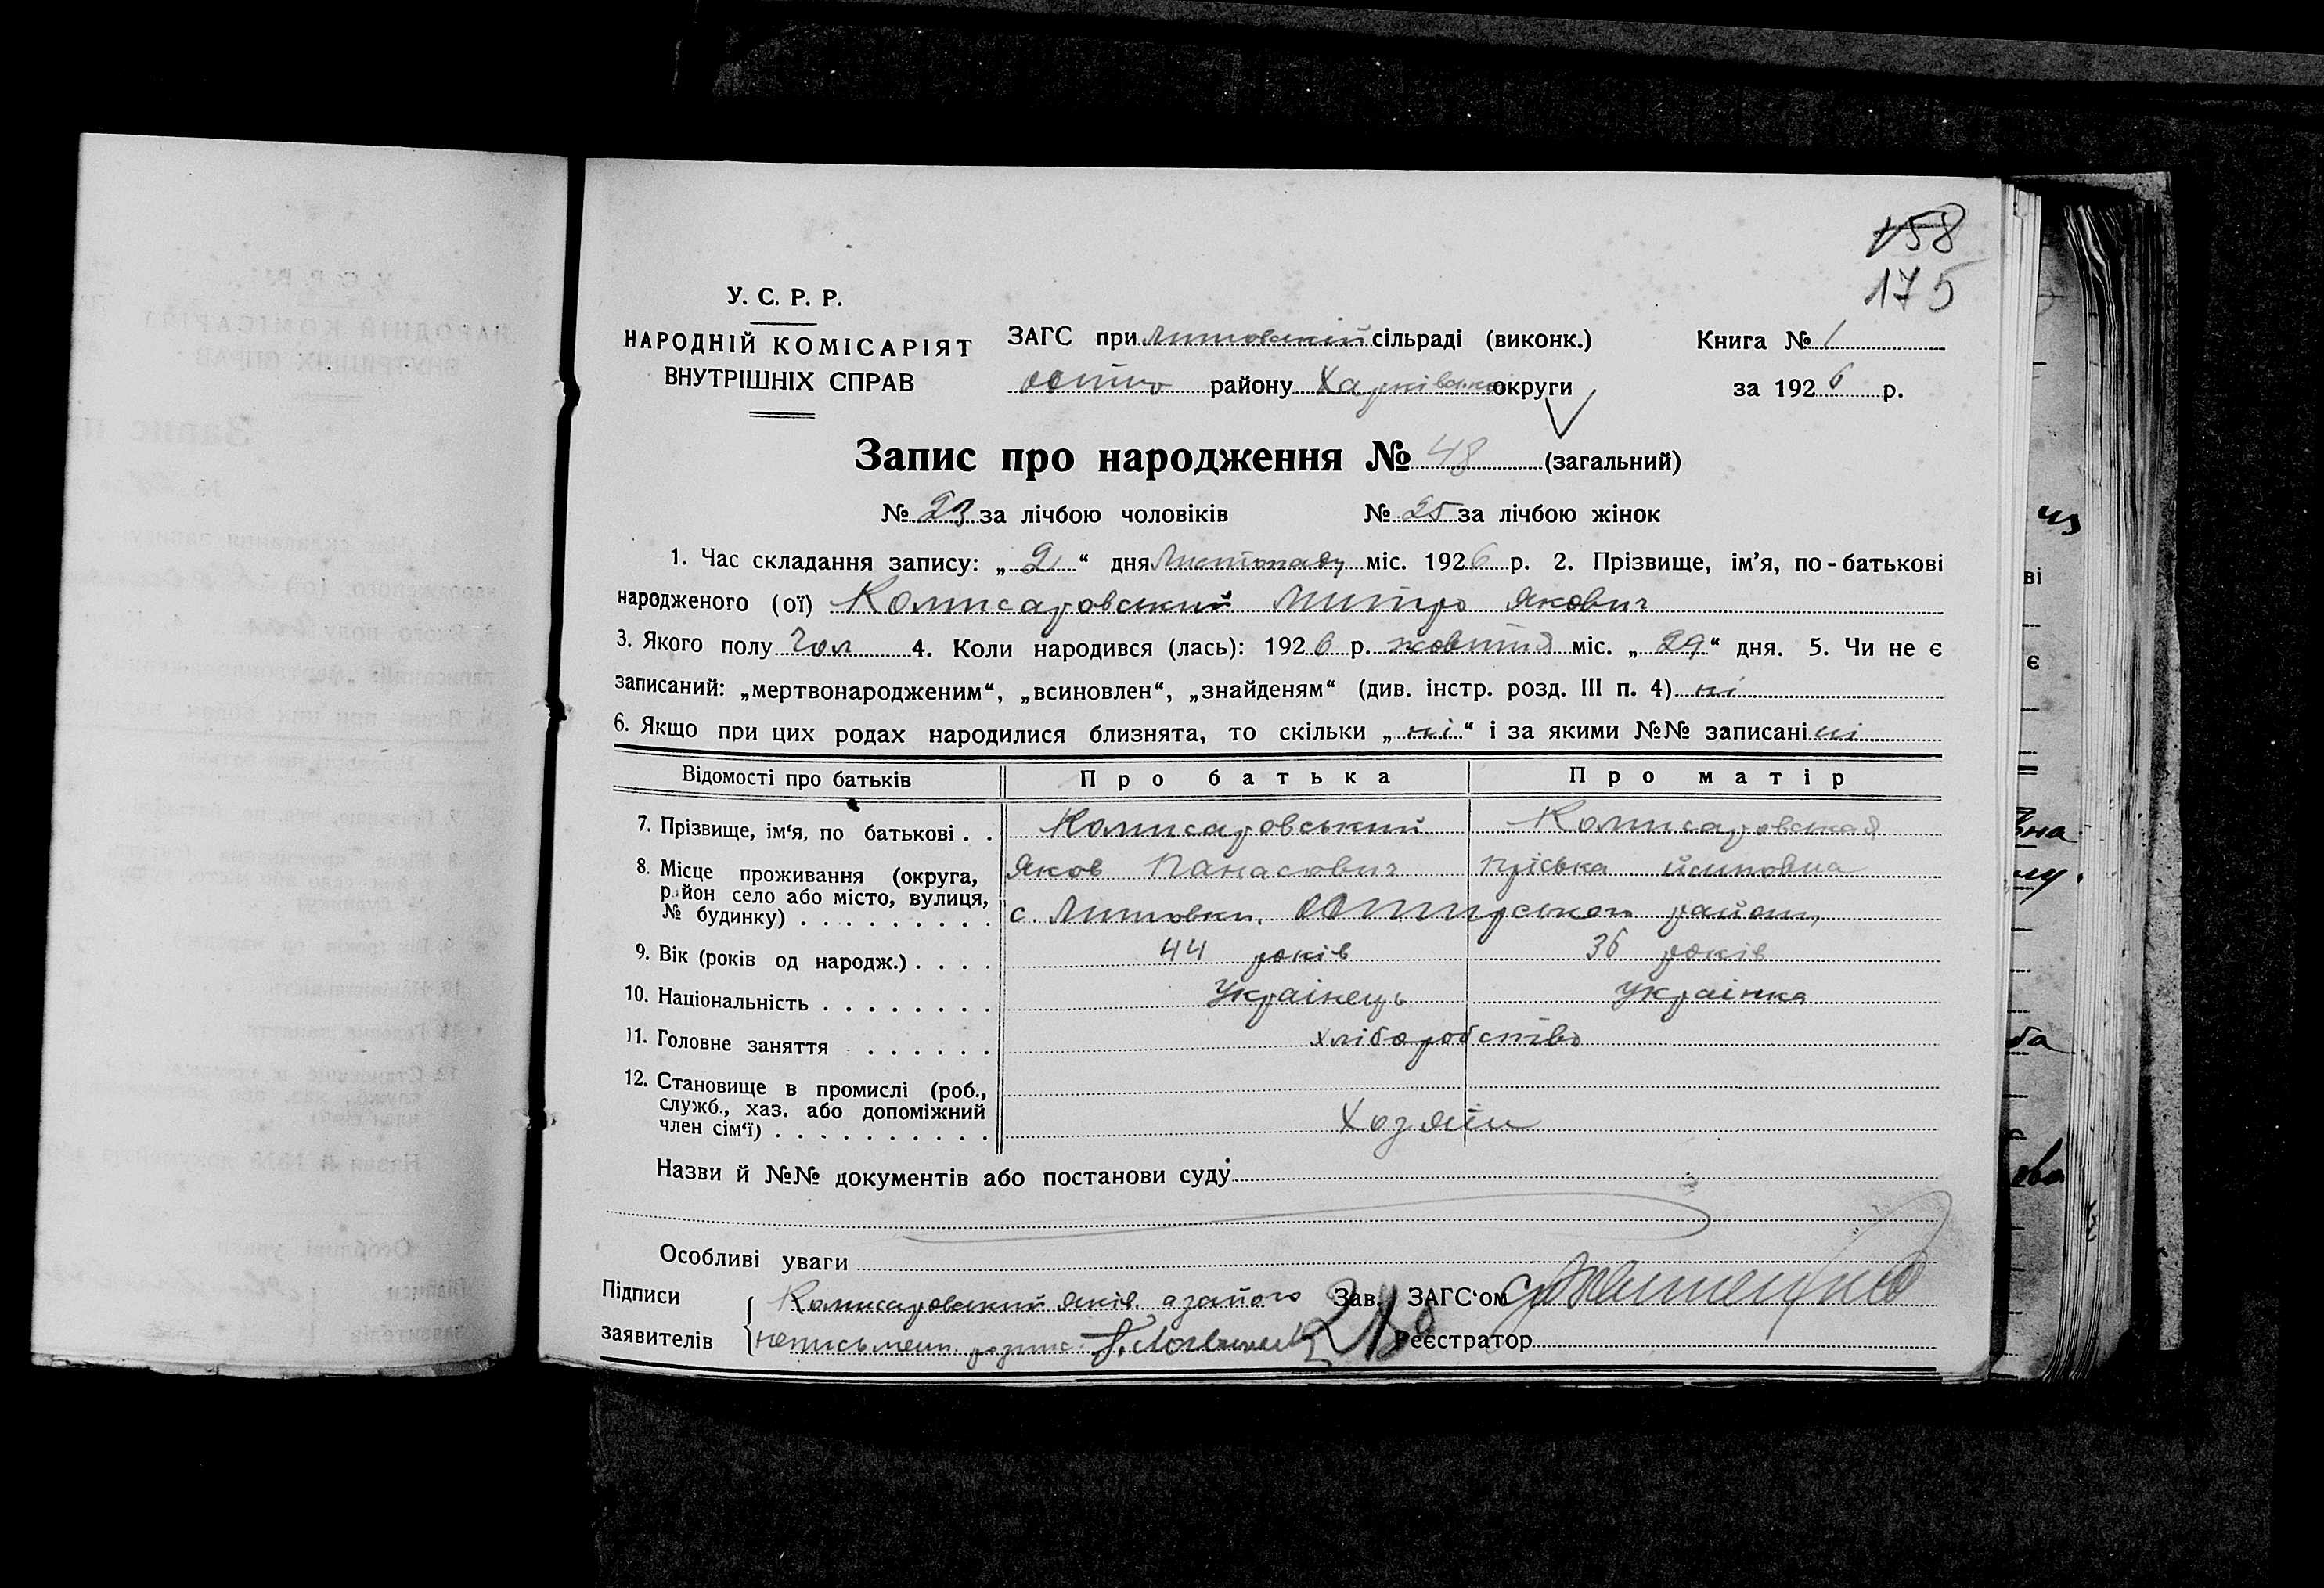 158
175
У. С. Р. Р.
НАРОДНІЙ КОМІСАРІЯТ
ВНУТРІШНІХ СПРАВ
ЗАГС при Литовский сільраді (виконк.)
району Харківської округи
Книга № 1
за 1926 р.
Запис про народження № 48 (загальний)
№ 23 за лічбою чоловіків № 25 за лічбою жінок
1. Час складання запису: „ 2 “ дня Листопаду міс. 1926 р. 2. Прізвище, ім'я, по-батькові
народженого (ої) Комисаровський Митро Якович
3. Якого полу Чол 4. Коли народився (лась): 1926 р. жовтня міс. „ 29 “ дня. 5. Чи не є
записаний: „мертвонародженим“, „всиновлен“, „знайденям“ (див. інстр. розд. III п. 4) ні
6. Якщо при цих родах народилися близнята, то скільки „ ні “ і за якими №№ записані ні
Відомості про батьків Про батька Про матір
7. Прізвище, ім'я, по батькові . . Комисаровський Комисаровская
Яков Панасович Пріська
8. Місце проживання (округа,
район село або місто, вулиця,
№ будинку) . . . . . . . . . с. Литовки, району
9. Вік (років од народж.) . . . . 44 років 36 років
10. Національність . . . . . . . . Українець Українка
11. Головне заняття . . . . . . хліборобство
12. Становище в промислі (роб.,
служб., хаз. або допоміжний
член сім'ї) . . . . . . . . . . Хозяїн
Назви й №№ документів або постанови суду
Особливі уваги
Підписи Комисаровский Яків а за його
заявителів
Зав. ЗАГС'ом
Реєстратор